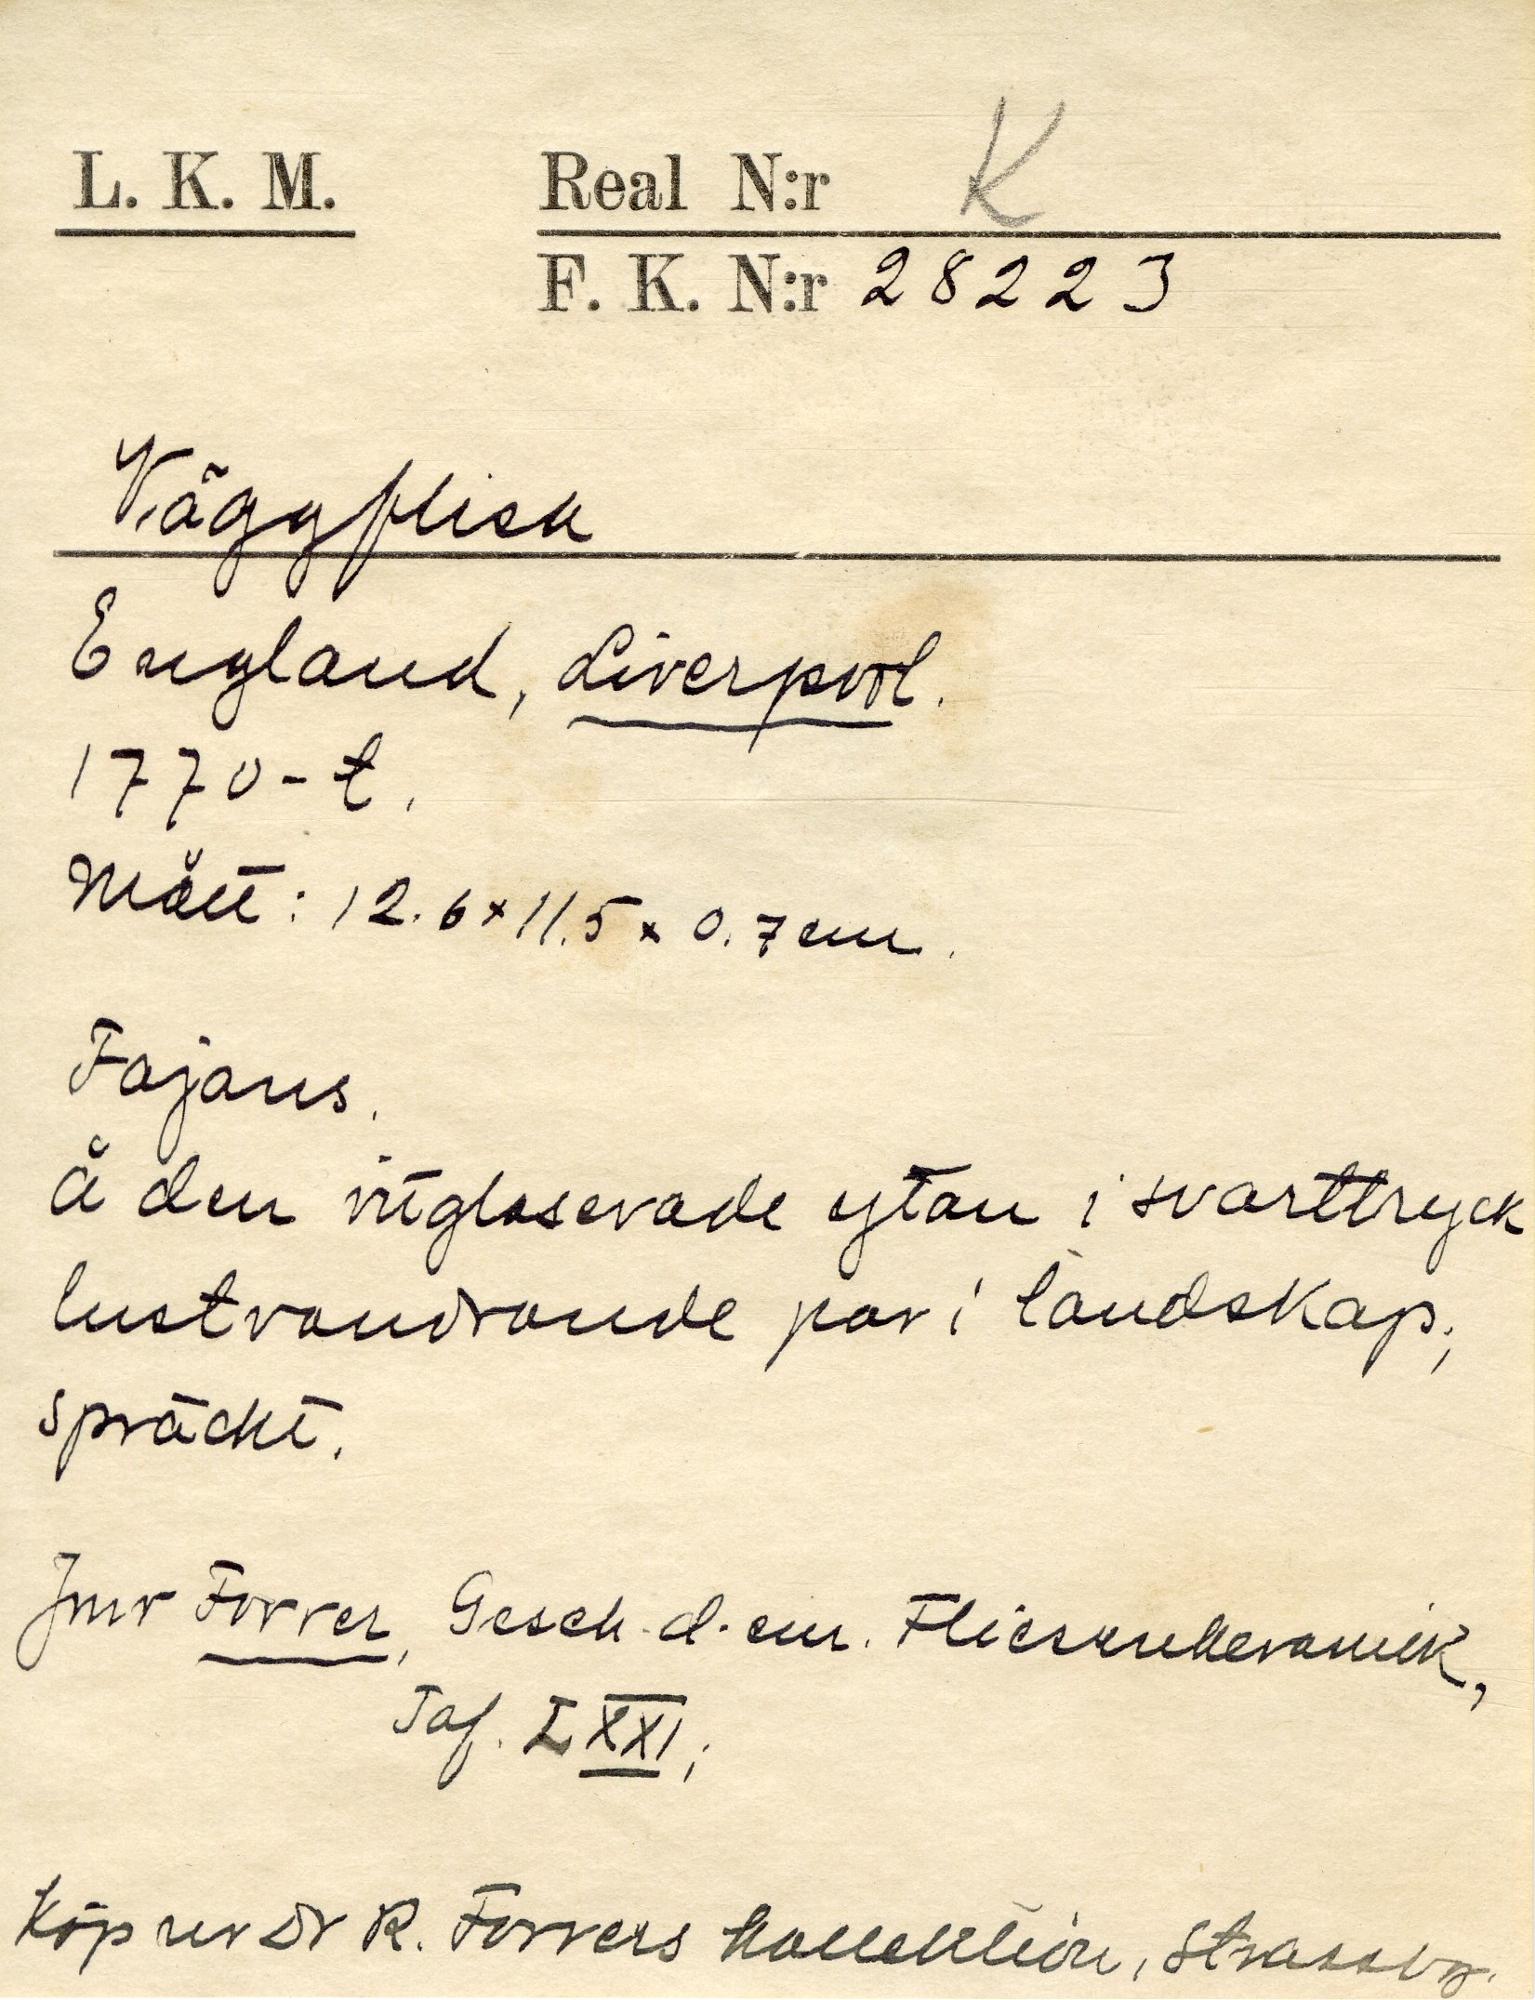 L. K. M. Real N:r K
F. K. N:r 28223
Väggflisa
England, Liverpool.
1770-t.
Mått: 12.6 x 11.5 x 0.7 cm.
Fajans.
Å den vitglaserade ytan i svarttryck
lustvandrande par i landskap;
spräckt.
Jmr Forrer, Gesch. d. eur. Fliesenkeramik,
Taf. LXXI;
Köp ur Dr R. Forrers kollektion, Strassbg.